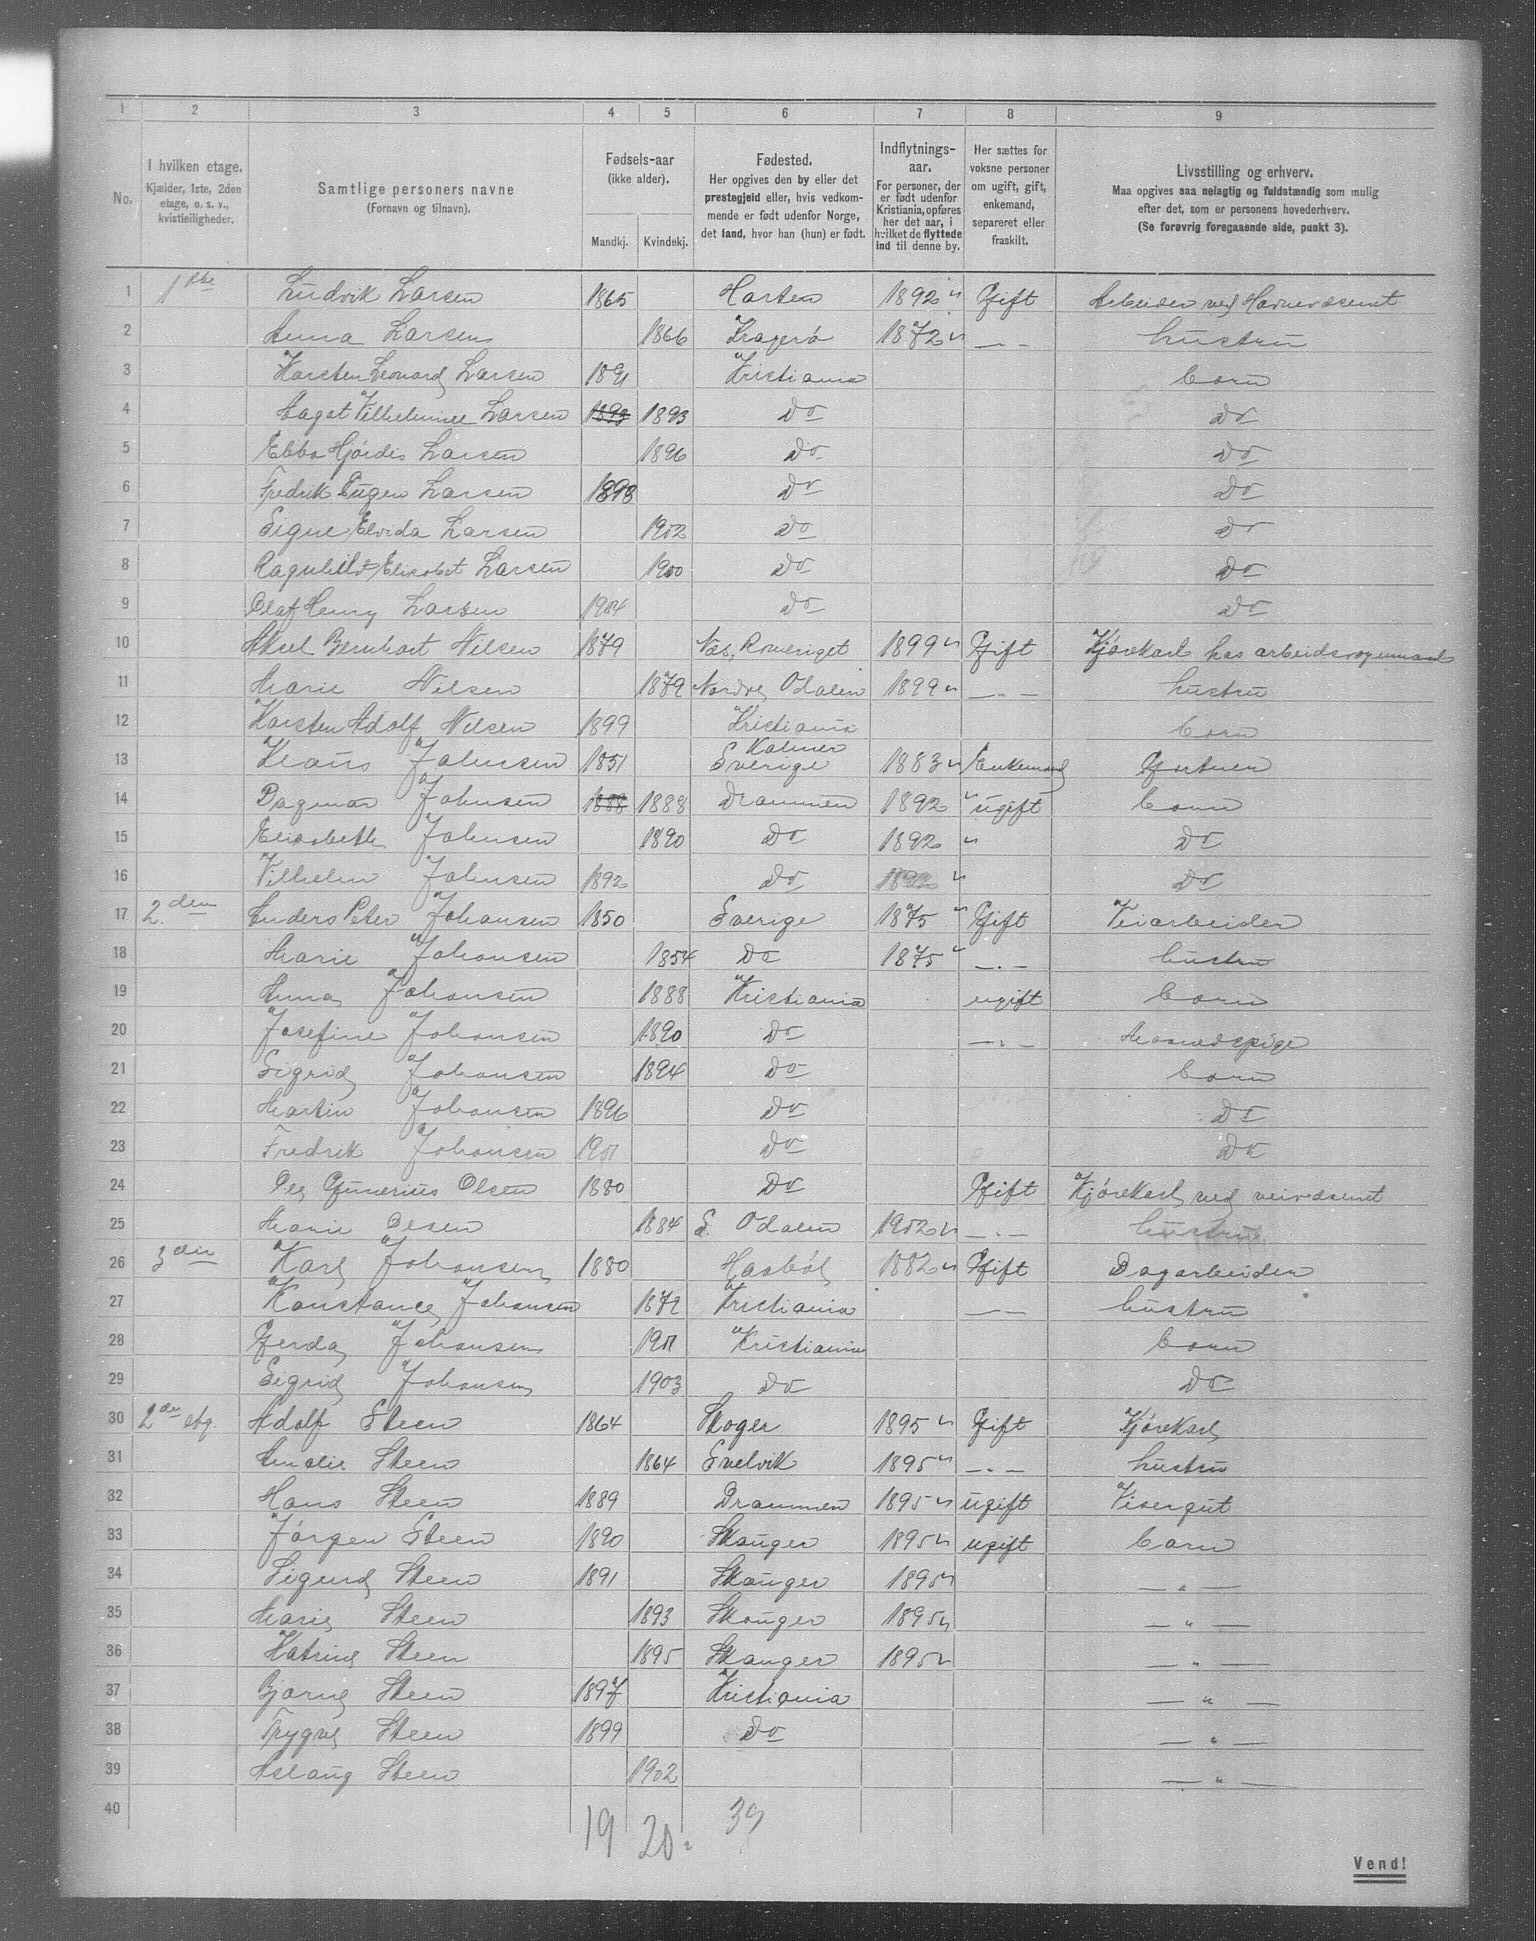 1 2 3 4 5 6 7 8 9
No.
I hvilken etage.
Kjælder, 1ste, 2den
etage, o. s. v.,
kvistleiligheder.
Samtlige personers navne
(Fornavn og tilnavn).
Fødsels-aar
(ikke alder).
Mandkj. Kvindekj.
Fødested.
Her opgives den by eller det
prestegjeld eller, hvis vedkom-
mende er født udenfor Norge,
det land, hvor han (hun) er født.
Indflytnings-
aar.
For personer, der
er født udenfor
Kristiania, opføres
her det aar, i
hvilket de flyttede
ind til denne by.
Her sættes for
voksne personer
om ugift, gift,
enkemand,
separeret eller
fraskilt.
Livsstilling og erhverv.
Maa opgives saa nøiagtig og fuldstændig som mulig
efter det, som er personens hovederhverv.
(Se forøvrig foregaaende side, punkt 3).
1 1ste Ludvik Larsen 1865 Horten 1892 Gift Arbeider ved Havnevæsenet
2 Anna Larsen 1866 Kragerø 1872 — " — hustru
3 Karsten Leonard Larsen 1891 Kristiania barn
4 Aagot Vilhelmine Larsen 1893 1893 Do Do
5 Ebba Hjørdis Larsen 1896 Do Do
6 Fredrik Eugen Larsen 1898 Do Do
7 Signe Elvida Larsen 1902 Do Do
8 Ragnhild Elisabet Larsen 1900 Do Do
9 Olaf Henry Larsen 1904 Do Do
10 Aksel Bernhart Nilsen 1879 Næs, Romeriget 1899 Gift Kjørekarl hos arbeidsvognmand
11 Marie Nilsen 1879 Nordre Odalen 1899 — " — hustru
12 Karsten Adolf Nilsen 1899 Kristiania barn
13 Klaus Johnsen 1851 Kalmer Sverige 1883 Enkemand Gartner
14 Dagmar Johnsen 1888 1888 Drammen 1892 ugift barn
15 Elisabeth Johnsen 1890 Do 1892 Do
16 Vilhelm Johnsen 1892 Do 1892 Do
17 2.den Anders Peter Johansen 1850 Sverige 1875 Gift Veiarbeider
18 Marie Johansen 1854 Do 1875 — " — hustru
19 Anna Johansen 1888 Kristiania ugift barn
20 Josefine Johansen 1890 Do — " — Maanedspige
21 Sigrid Johansen 1894 Do barn
22 Martin Johansen 1896 Do Do
23 Fredrik Johansen 1901 Do Do
24 Ole Gunerius Olsen 1880 Do Gift Kjørekarl ved veivæsenet
25 Marie Olsen 1884 S. Odalen 1902 — " — hustru
26 3die Karl Johansen 1880 Haabøl 1882 Gift Dagarbeider
27 Konstance Johansen 1872 Kristiania — — hustru
28 Gerda Johansen 1901 Kristiania barn
29 Sigrid Johansen 1903 Do Do
30 2den etg. Adolf Steen 1864 Skoger 1895 Gift Kjørekarl
31 Amalie Steen 1864 Svelvik 1895 — " — hustru
32 Hans Steen 1889 Drammen 1895 ugift Visergut
33 Jørgen Steen 1890 Skauger 1895 ugift barn
34 Sigurd Steen 1891 Skauger 1895 — " —
35 Marie Steen 1893 Skauger 1895 — " —
36 Katrine Steen 1895 Skauger 1895 — " —
37 Bjarne Steen 1897 Kristiania — " —
38 Trygve Steen 1899 Do — " —
39 Aslaug Steen 1902 — " —
40
19 20 39
Vend!